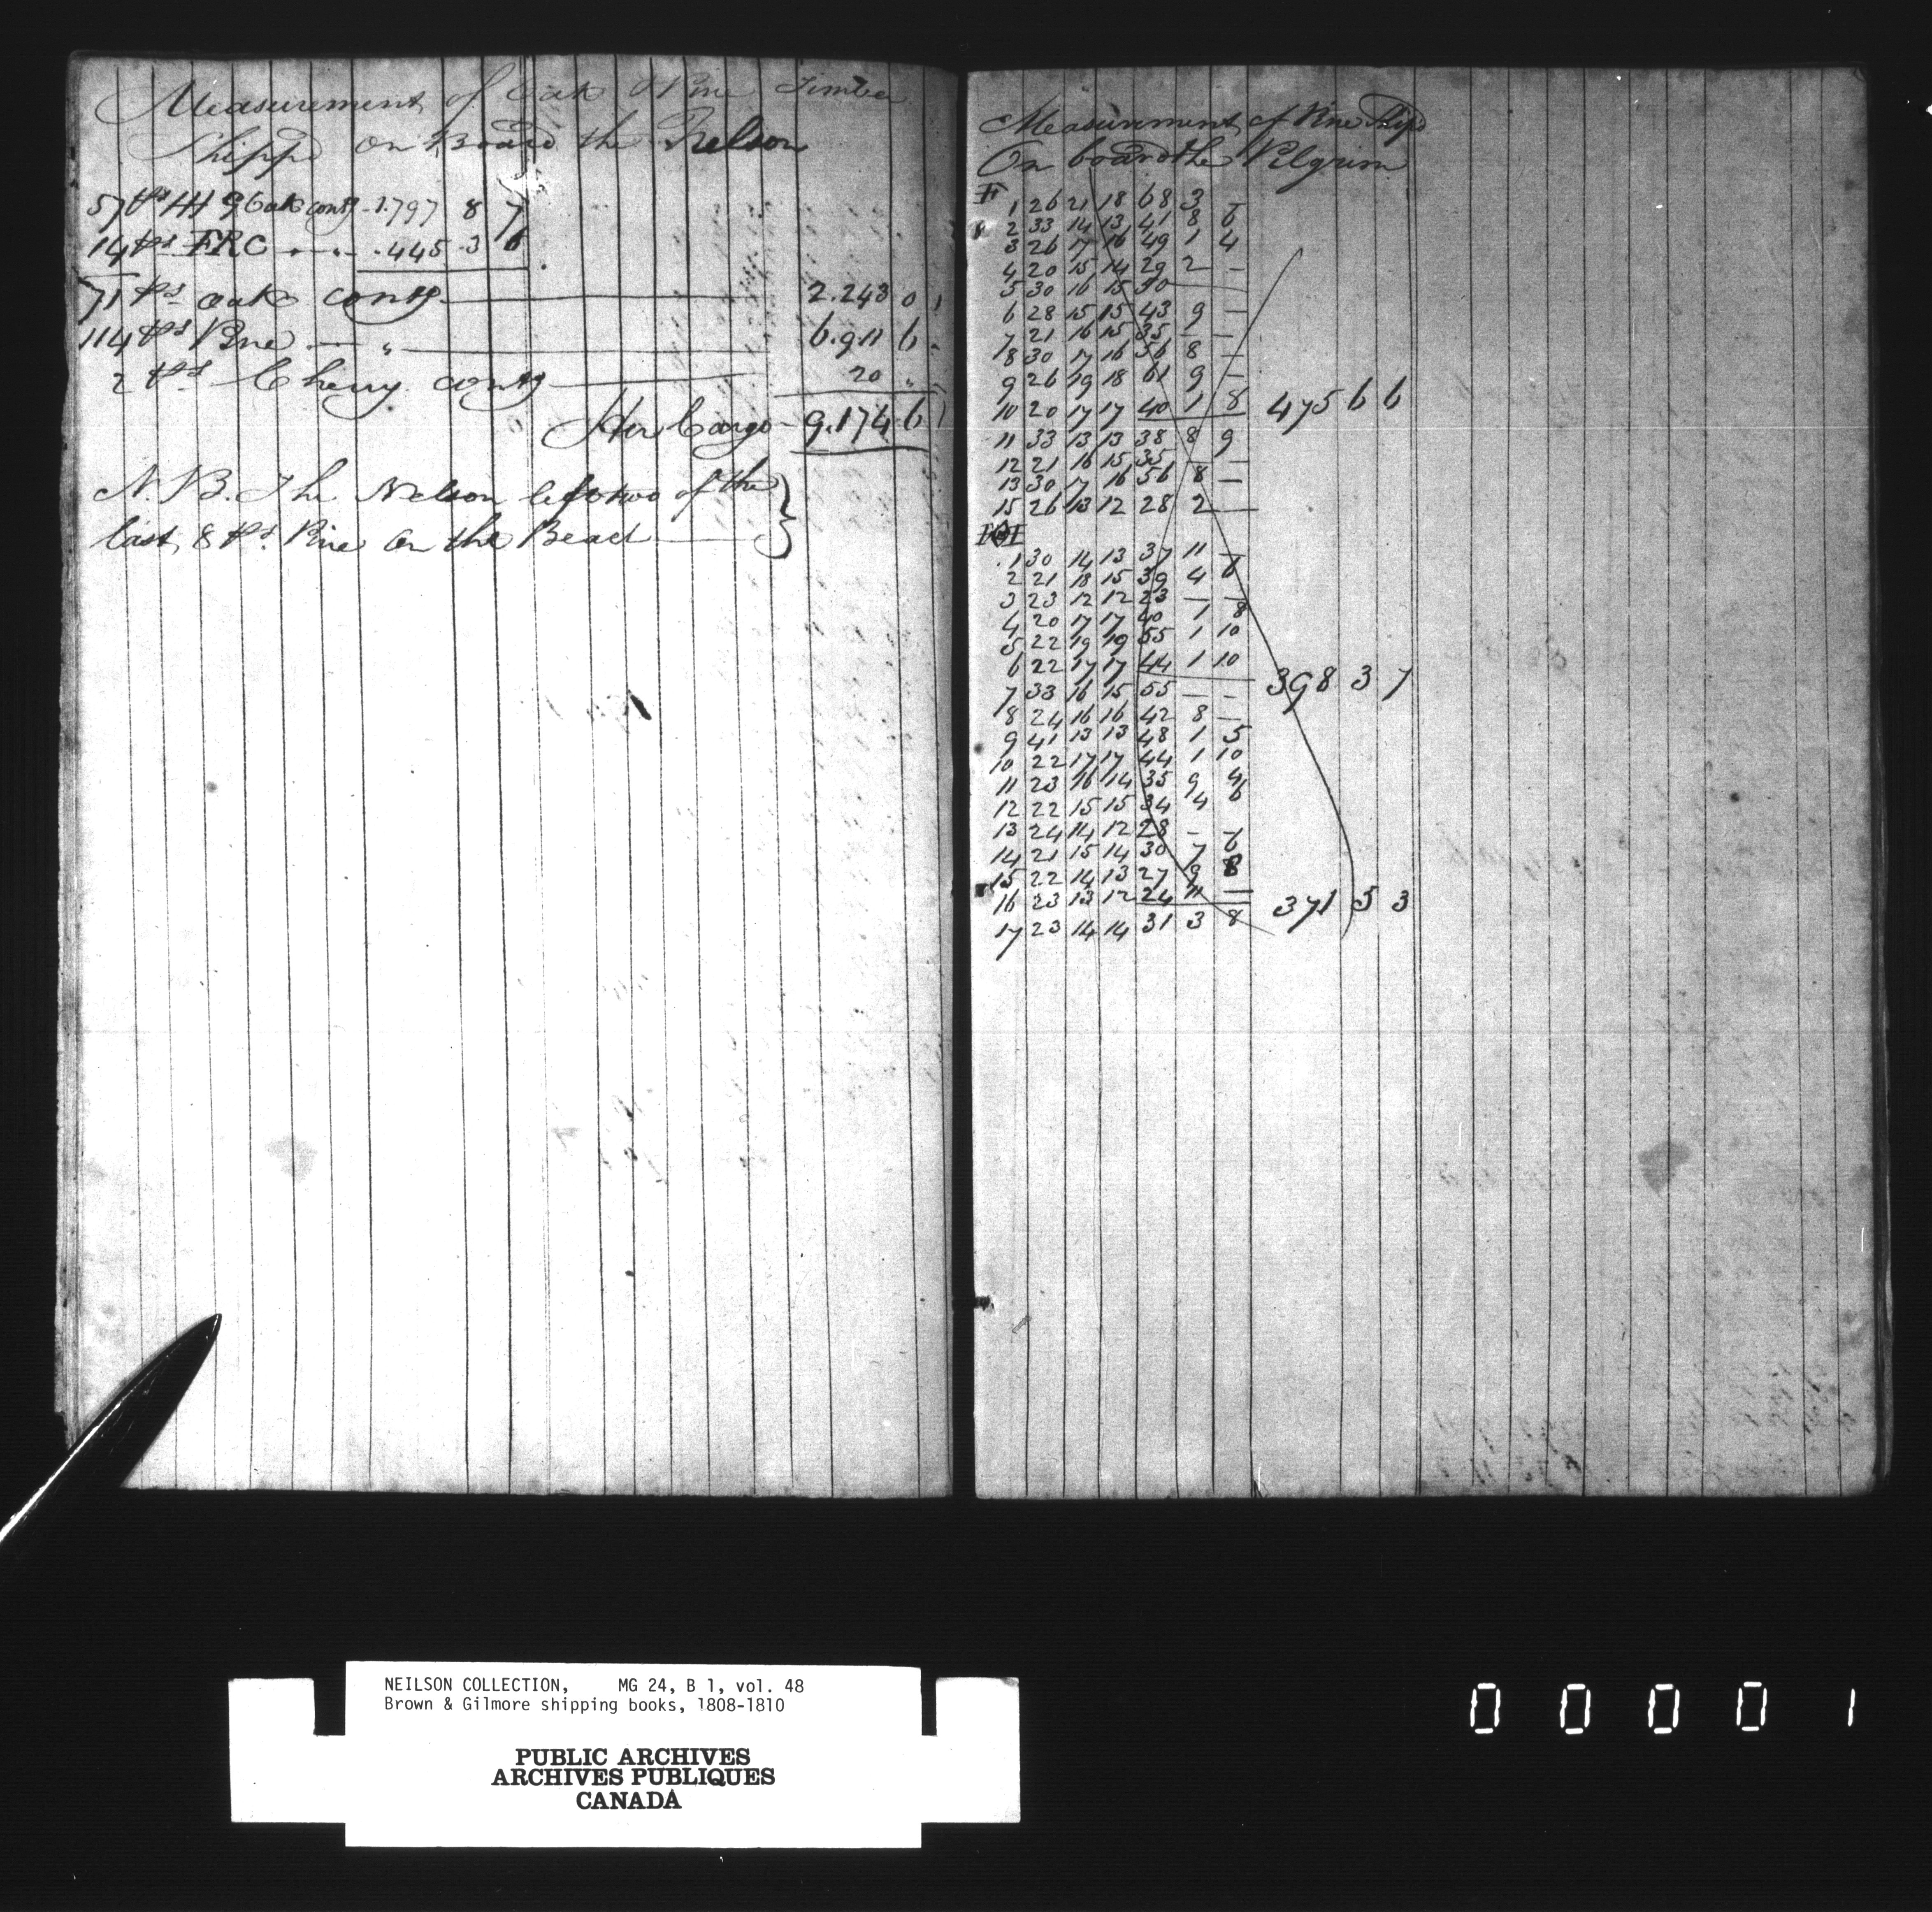 Measurement of Oak & Pine Timber
Shippd on Board the Nelson
57 ps HI 9 Oak contg 1.797 8 7
14 ps FRC .445 3 6
71 ps oak contg 2.243 0 1
114 ps Pine 6.911 6
2 ps Cherry contg 20 "
Her Cargo 9.174 6 1
N.B. The Nelson left two of the
last 8 ps Pine on the Beach
Measurment of Pine Shipd
On board the Pilgrim
1 26 21 18 68 3 –
2 33 14 13 41 8 6
3 26 17 16 49 1 4
4 20 15 14 29 2 –
5 30 16 15 30
6 28 15 15 43 9 –
7 21 16 15 35 – –
8 30 17 16 56 8 –
9 26 19 18 61 9 –
10 20 17 17 40 1 8 475 6 6
11 33 13 13 38 8 9
12 21 16 15 35 – –
13 30 17 16 56 8 –
15 26 13 12 28 2 –
1 30 14 13 37 11 –
2 21 18 15 39 4 6
3 23 12 12 23 – –
4 20 17 17 40 1 8
5 22 19 19 55 1 10
6 22 17 17 44 1 10 398 3 7
7 33 16 15 55 – –
8 24 16 16 42 8 –
9 41 13 13 48 1 5
10 22 17 17 44 1 10
11 23 16 14 35 9 4
12 22 15 15 34 4 6
13 24 14 12 28 – –
14 21 15 14 30 7 6
15 22 14 13 27 9 8
16 23 13 12 24 11 – 371 5 3
17 23 14 14 31 3 8
NEILSON COLLECTION, MG 24, B 1, vol. 48
Brown & Gilmore shipping books, 1808-1810
PUBLIC ARCHIVES
ARCHIVES PUBLIQUES
CANADA
0 0 0 0 1